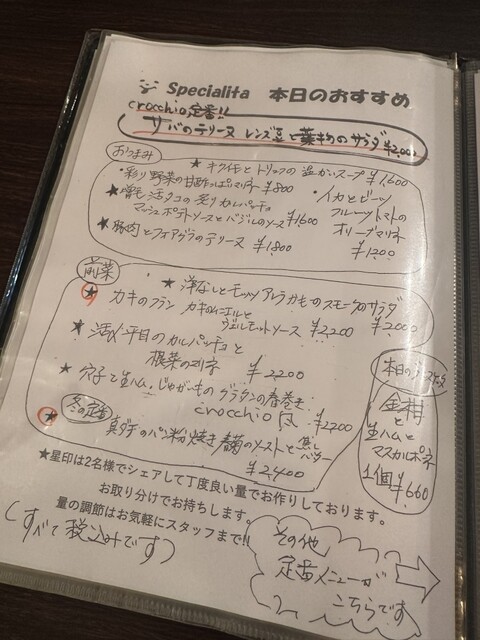 Specialita 本日のおすすめ
crocchio定番!!
サバのテリーヌ レンズ豆と葉物のサラダ ¥2,000
おつまみ
★キクイモとトリュフの温かいスープ ¥1,600
・彩り野菜の甘酢っぱいマリネ ¥800
★増毛活タコの炙りカルパッチョ
マッシュポテトソースとバジルのソース ¥1600
★豚肉とフォアグラのテリーヌ ¥1,800
・イカとビーツ
フルーツトマトの
オリーブマリネ
¥1200
前菜
★洋なしとモッツァレラ かものスモークのサラダ
¥2,000
★カキのフラン カキのムニエルと
ヴェルモットソース ¥2,200
★活〆平目のカルパッチョと
根菜のラビゴット
¥2,200
★穴子と生ハム、じゃがいものグラタンの春巻き
crocchio風 ¥2200
冬の定番
★真ダチのパン粉焼き 春菊のソースと焦しバター
¥2,400
本日の
金柑
と
生ハムと
マスカルポーネ
1個 ¥660
★星印は2名様でシェアして丁度良い量でお作りしております。
お取り分けでお持ちします。
量の調節はお気軽にスタッフまで!!
(すべて税込みです)
その他
定番メニューが
こちらです